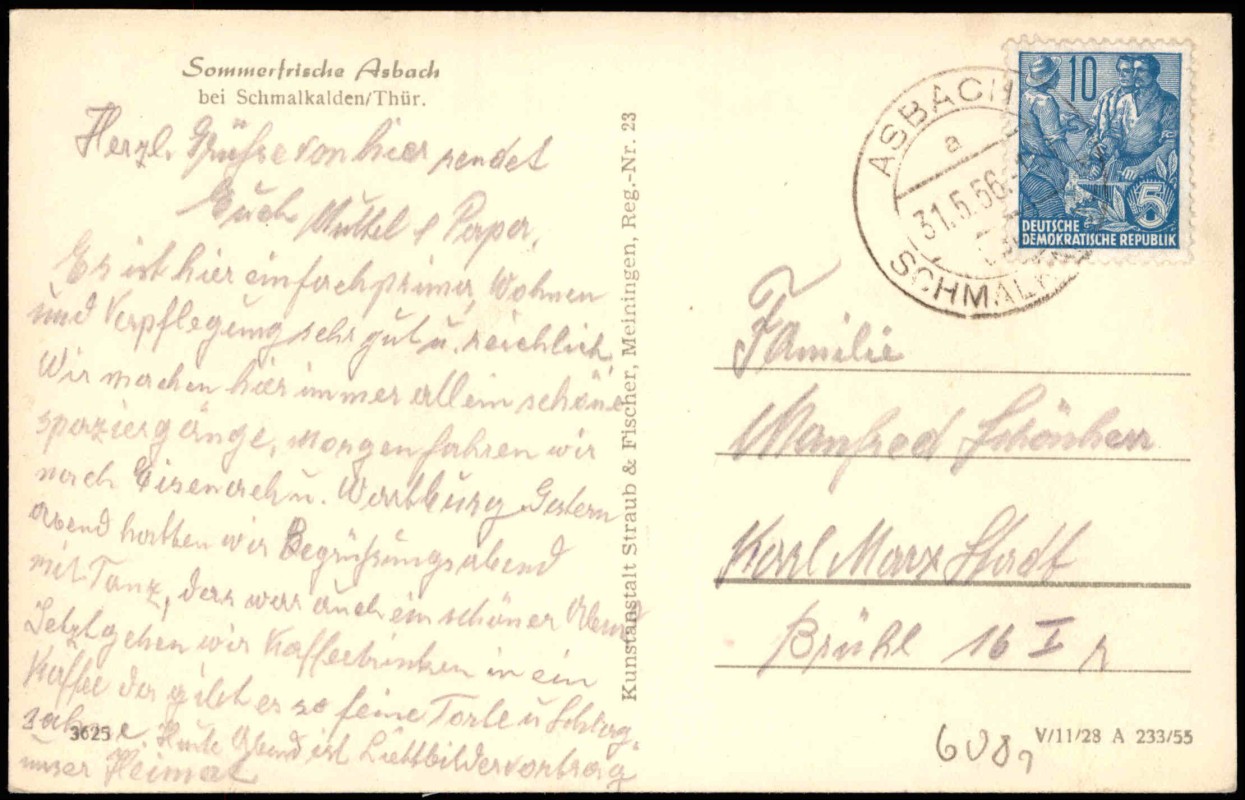 Sommerfrische Asbach
bei Schmalkalden/Thür.
Herzl. Grüße von hier sendet
Euch Muttel & Papa.
Es ist hier einfach prima, Wohnen
und Verpflegung sehr gut u. reichlich,
Wir machen hier immer allein schöne
spaziergänge, Morgen fahren wir
nach Eisenach u. Wartburg, Gestern
abend hatten wir Begrüßungsabend
mit Tanz, das war auch ein schöner Abend
Jetzt gehen wir Kaffeetrinken in ein
Kaffee da gibt es so feine Torte u Schlag-
sahne, Heute Abend ist Lichtbildervortrag
unser Heimat
3625
Kunstanstalt Straub & Fischer, Meiningen, Reg.-Nr. 23
ASBACH
a
31.5.56
SCHMALK
10
5
DEUTSCHE
DEMOKRATISCHE REPUBLIK
Familie
Manfred Schönherr
Karl Marx Stadt
Brühl 16 I r
V/11/28 A 233/55